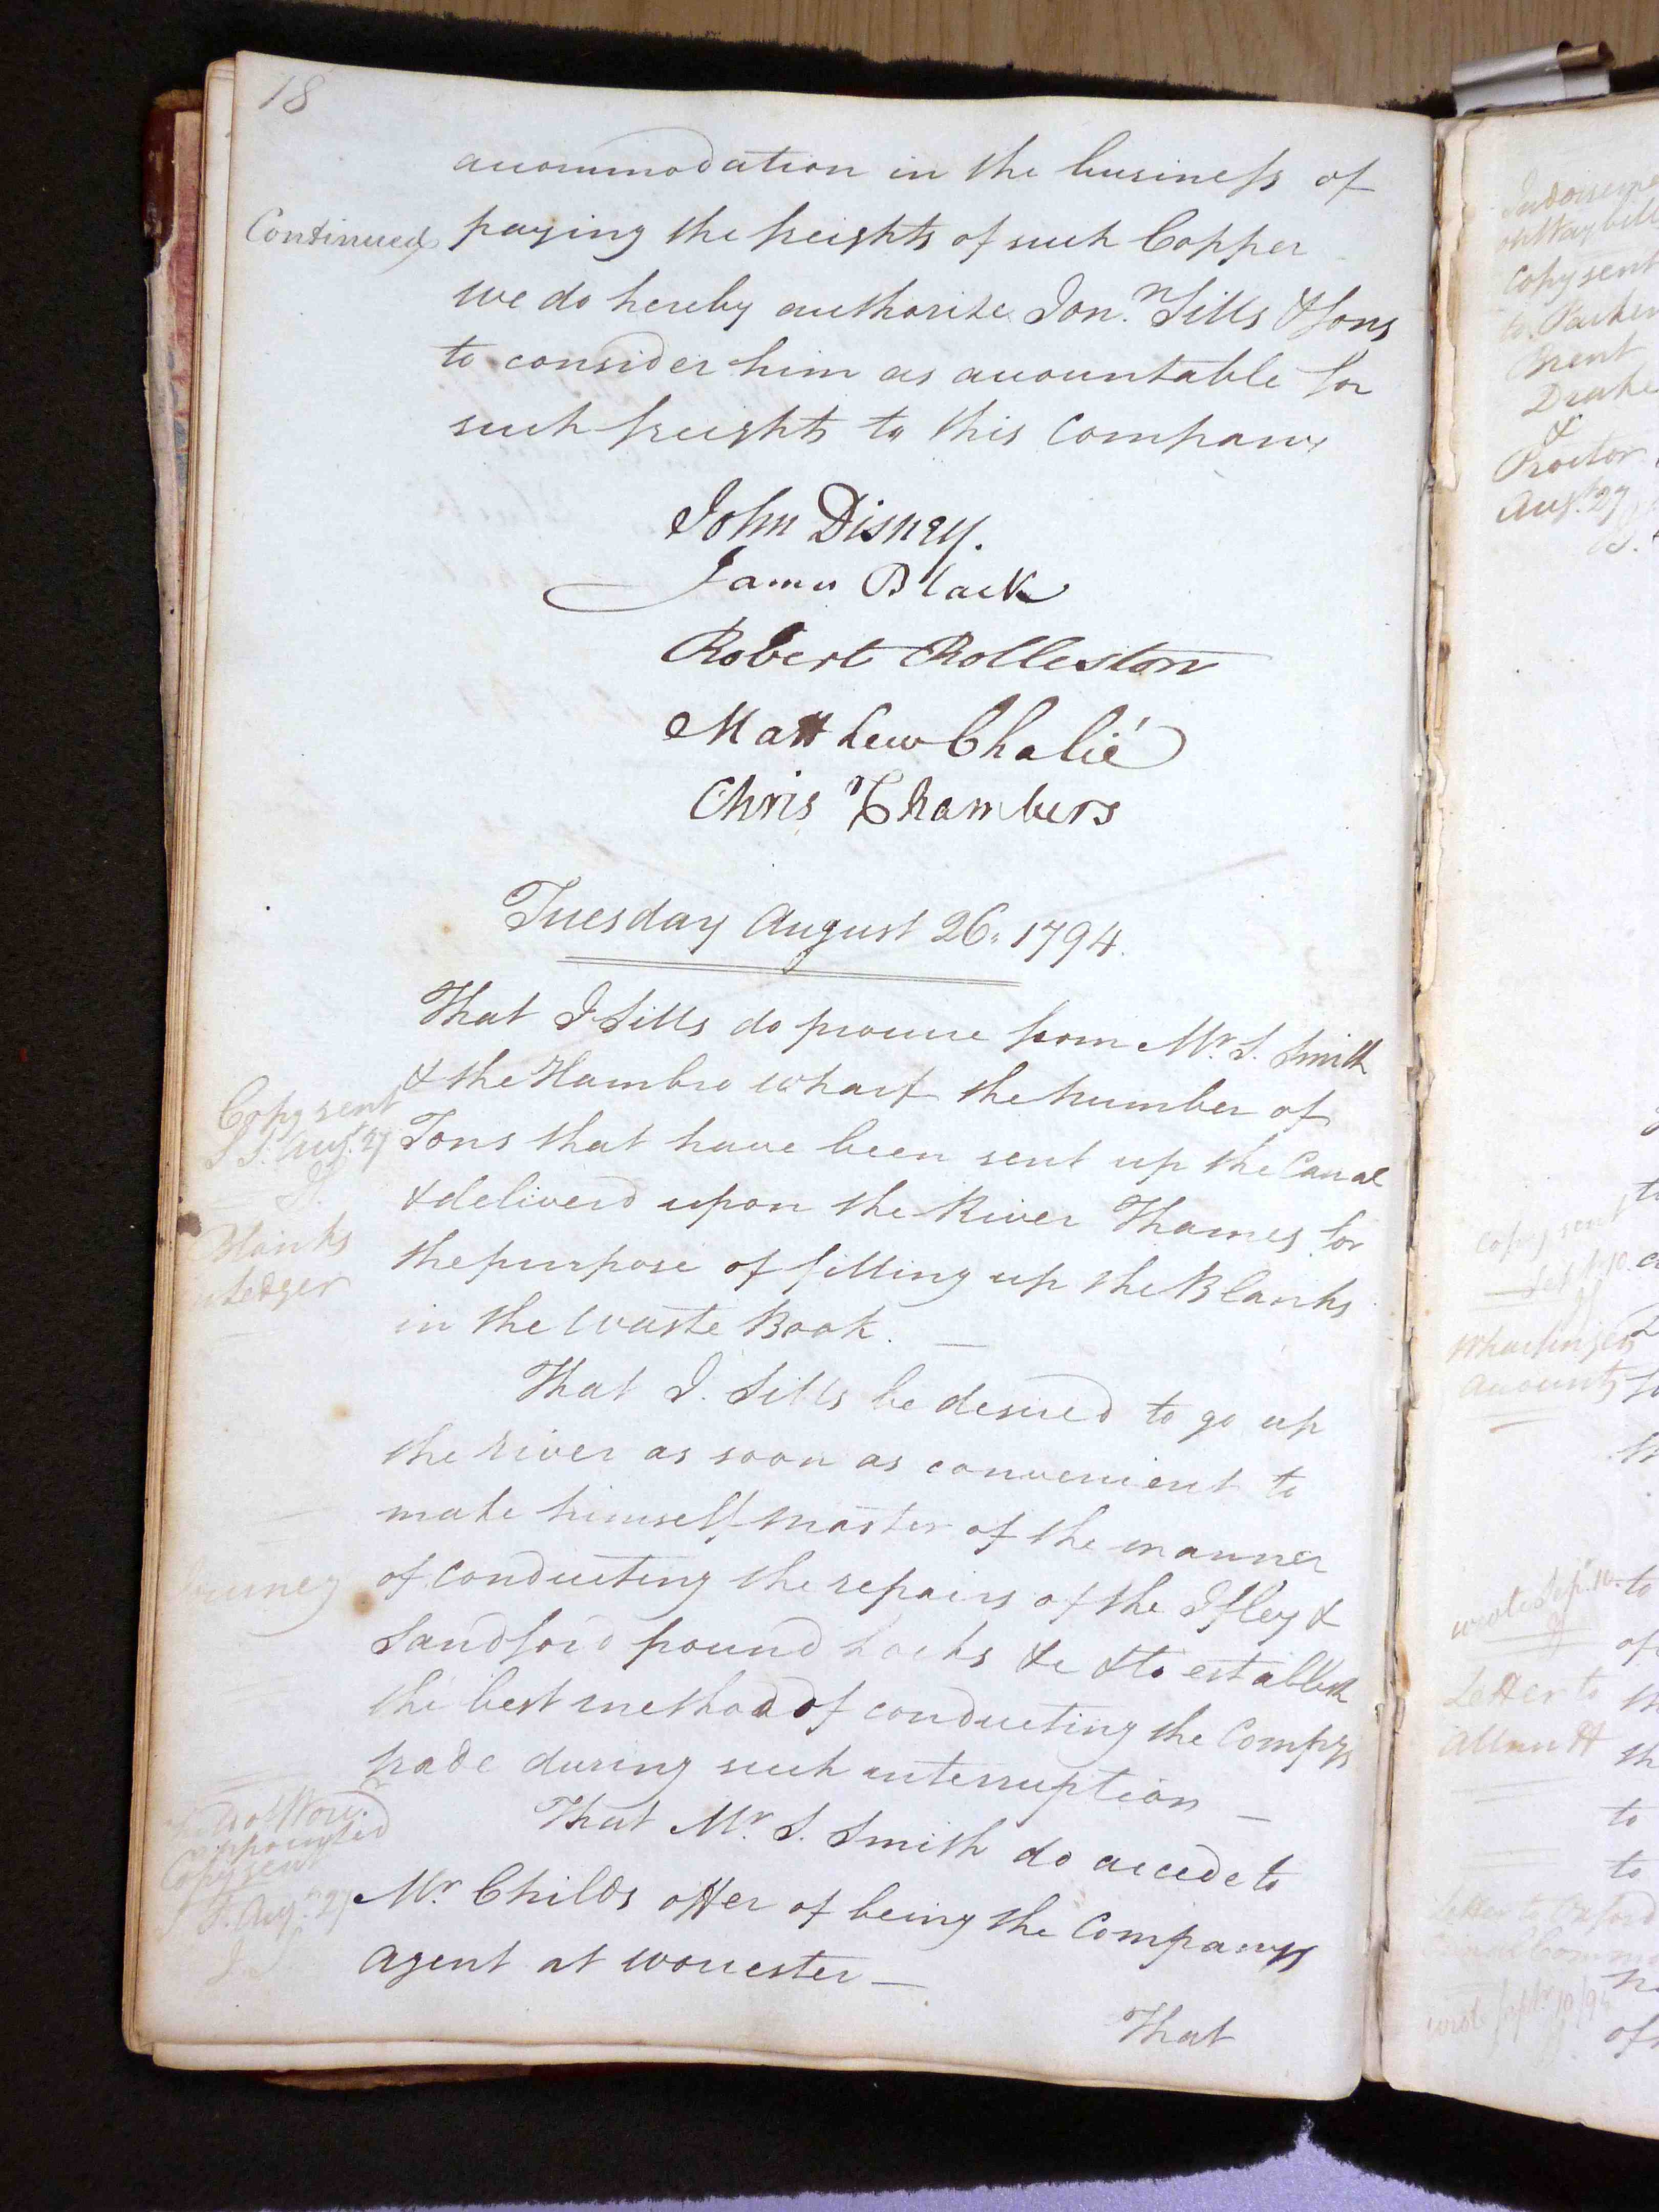 18
accommodation in the business of
Continued
paying the freights of such Copper
we do hereby authorize Jon.n Sills & Sons
to consider him as accountable for
such freights to this Company
John Disney.
James Black
Robert Rolleston
Matthew Chalié
Chris Chambers
Tuesday August 26. 1794.
That J Sills do procure from Mr. S. Smith
& the Hambro wharf the number of
Copy sent
Tons that have been sent up the Canal
S S. Augt. 27
& deliverd upon the River Thames for
Blanks
the purpose of filling up the Blanks
Ledger
in the Waste Book. —
That J. Sills be desired to go up
the river as soon as convenient to
make himself Master of the manner
of conducting the repairs of the Ifley &
Sandford pound Locks &c & to establish
the best method of conducting the Compys
trade during such interruption —
That Mr. S. Smith do accede to
appointed
Copy sent
Mr Childs offer of being the Companys
Agent at Worcester —
That
Copy sent
to Parker
Brent
Drake
&
Proctor
Augt. 27
Copy sent
Wharfingers
accounts
wrote Sep. 10.
Letter to
Allnutt
Letter to Oxford